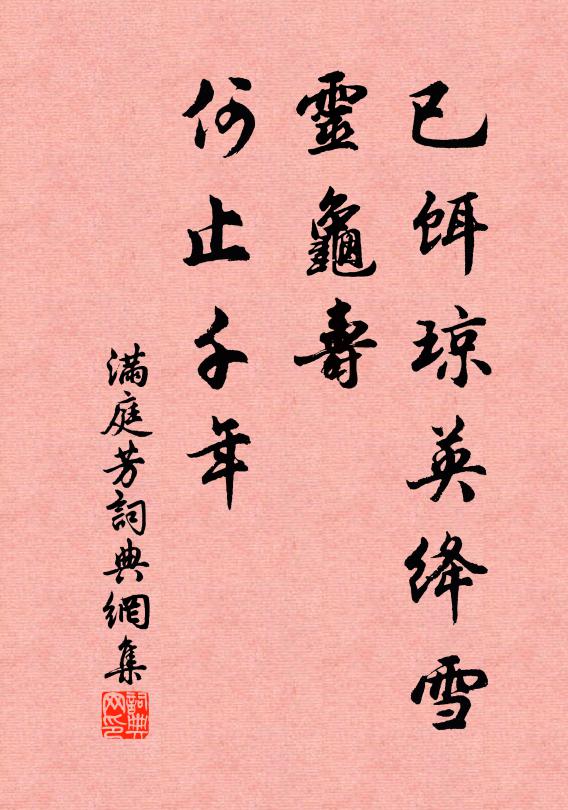 已餌琼英绛雪
靈龜壽
何止千年
满庭芳詞典網集
詞典网印